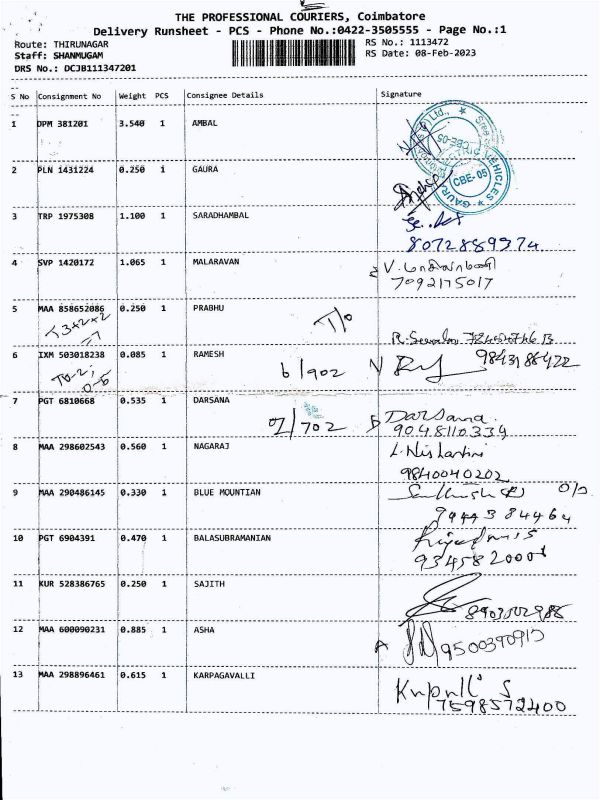 THE PROFESSIONAL COURIERS, Coimbatore
Delivery Runsheet - PCS - Phone No.:0422-3505555 - Page No.:1
Route: THIRUNAGAR
RS No.: 1113472
Staff: SHANMUGAM
RS Date: 08-Feb-2023
DRS No.: DCJB111347201
S No Consignment No Weight PCS Consignee Details Signature
1 DPM 381201 3.540 1 AMBAL
2 PLN 1431224 0.250 1 GAURA
VEHICLES
CBE-05
GAURA
3 TRP 1975308 1.100 1 SARADHAMBAL
8072889974
4 SVP 1420172 1.065 1 MALARAVAN
7092175017
5 MAA 858652086 0.250 1 PRABHU
T3+2+2
=7
6 IXM 503018238 0.085 1 RAMESH
6/902
9843188422
7 PGT 6810668 0.535 1 DARSANA
/702
Darsana
9048110334
8 MAA 298602543 0.560 1 NAGARAJ
L. Nishantini
9840040202
9 MAA 290486145 0.330 1 BLUE MOUNTIAN
9444384464
10 PGT 6904391 0.470 1 BALASUBRAMANIAN
9345820001
11 KUR 528386765 0.250 1 SAJITH
8903002988
12 MAA 600090231 0.885 1 ASHA
9500390913
13 MAA 298896461 0.615 1 KARPAGAVALLI
7598572400